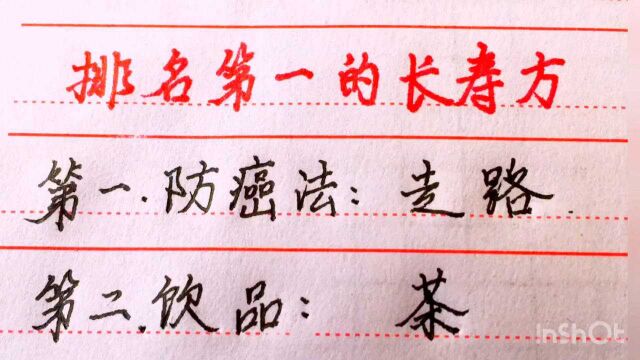 排名第一的长寿方
第一.防癌法：走路.
第二.饮品：茶
InShOt